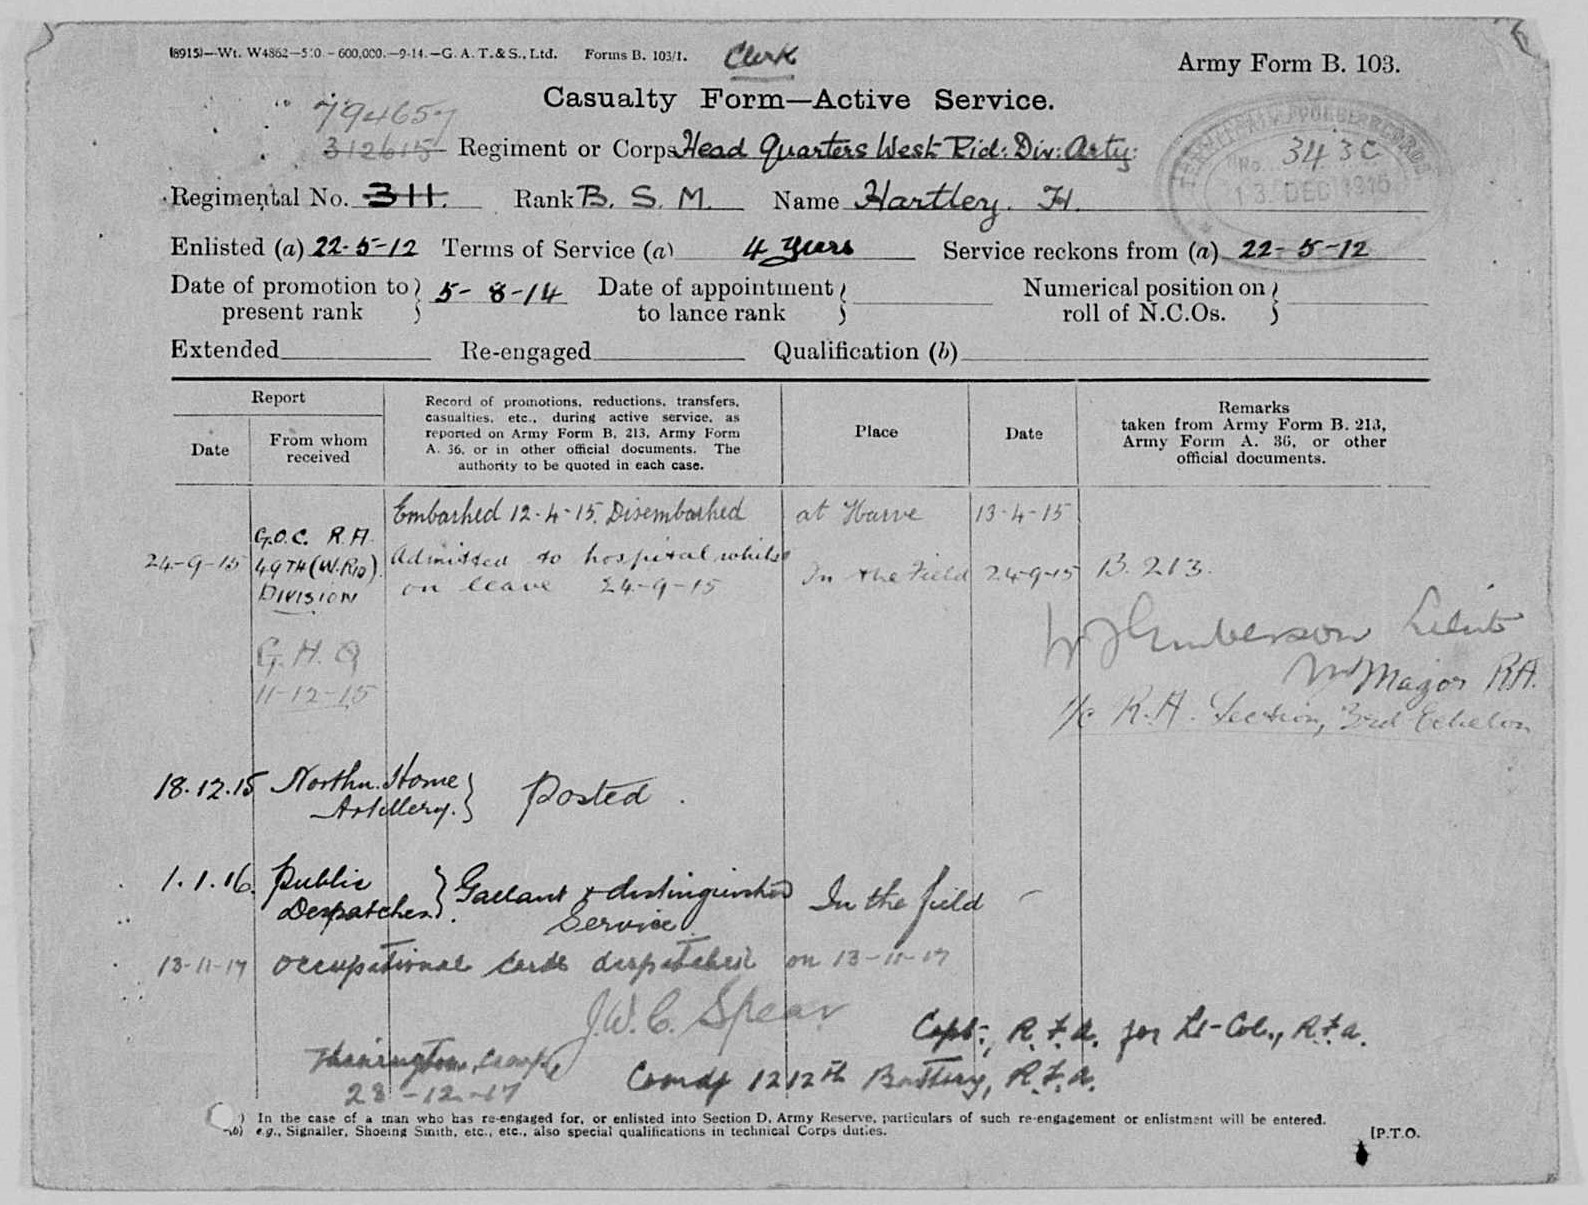 (8915)—Wt. W4862—5:0.—600,000.—9-14.—G. A. T. & S., Ltd. Forms B. 103/1. Clerk Army Form B. 103.
Casualty Form—Active Service.
794657
312615 Regiment or Corps Head Quarters West Rid: Div: Arty:
No. 343C
13 DEC 1915
Regimental No. 311. Rank B. S. M. Name Hartley. H.
Enlisted (a) 22-5-12 Terms of Service (a) 4 years Service reckons from (a) 22-5-12
Date of promotion to present rank } 5-8-14 Date of appointment to lance rank } Numerical position on roll of N.C.Os. }
Extended Re-engaged Qualification (b)
Report
Date
From whom
received
Record of promotions, reductions, transfers,
casualties, etc., during active service, as
reported on Army Form B. 213, Army Form
A. 36, or in other official documents. The
authority to be quoted in each case.
Place
Date
Remarks
taken from Army Form B. 213,
Army Form A. 36, or other
official documents.
Embarked 12-4-15. Disembarked at Havre 13-4-15
24-9-15
G.O.C. R.A.
49TH (W. RID).
DIVISION
Admitted to hospital whilst
on leave 24-9-15
In the Field 24-9-15 B. 213.
G. H. Q
11-12-15
Lieut
Major RA.
i/c R.A. Section, 3rd Echelon
18.12.15 Northn. Home
Artillery. } Posted.
1.1.16. Public
Despatches. } Gallant & distinguished
Service.
In the field
13-11-17 Occupational Cards despatched on 13-11-17
J.W.C. Spear
Capt:, R.F.A. for Lt-Col., R.F.A.
Comdg 1212th Battery, R.F.A.
28-12-17
) In the case of a man who has re-engaged for, or enlisted into Section D, Army Reserve, particulars of such re-engagement or enlistment will be entered.
(b) e.g., Signaller, Shoeing Smith, etc., etc., also special qualifications in technical Corps duties.
[P.T.O.